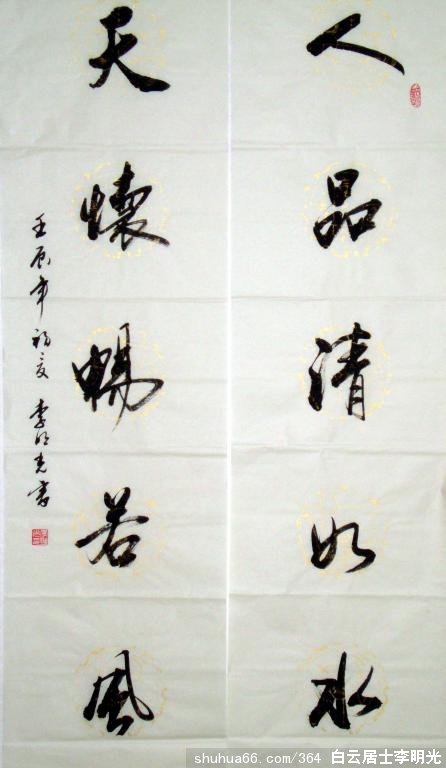 人品清如水
天懷暢若風
壬辰年初夏 李明光書
shuhua66.com/364 白云居士李明光